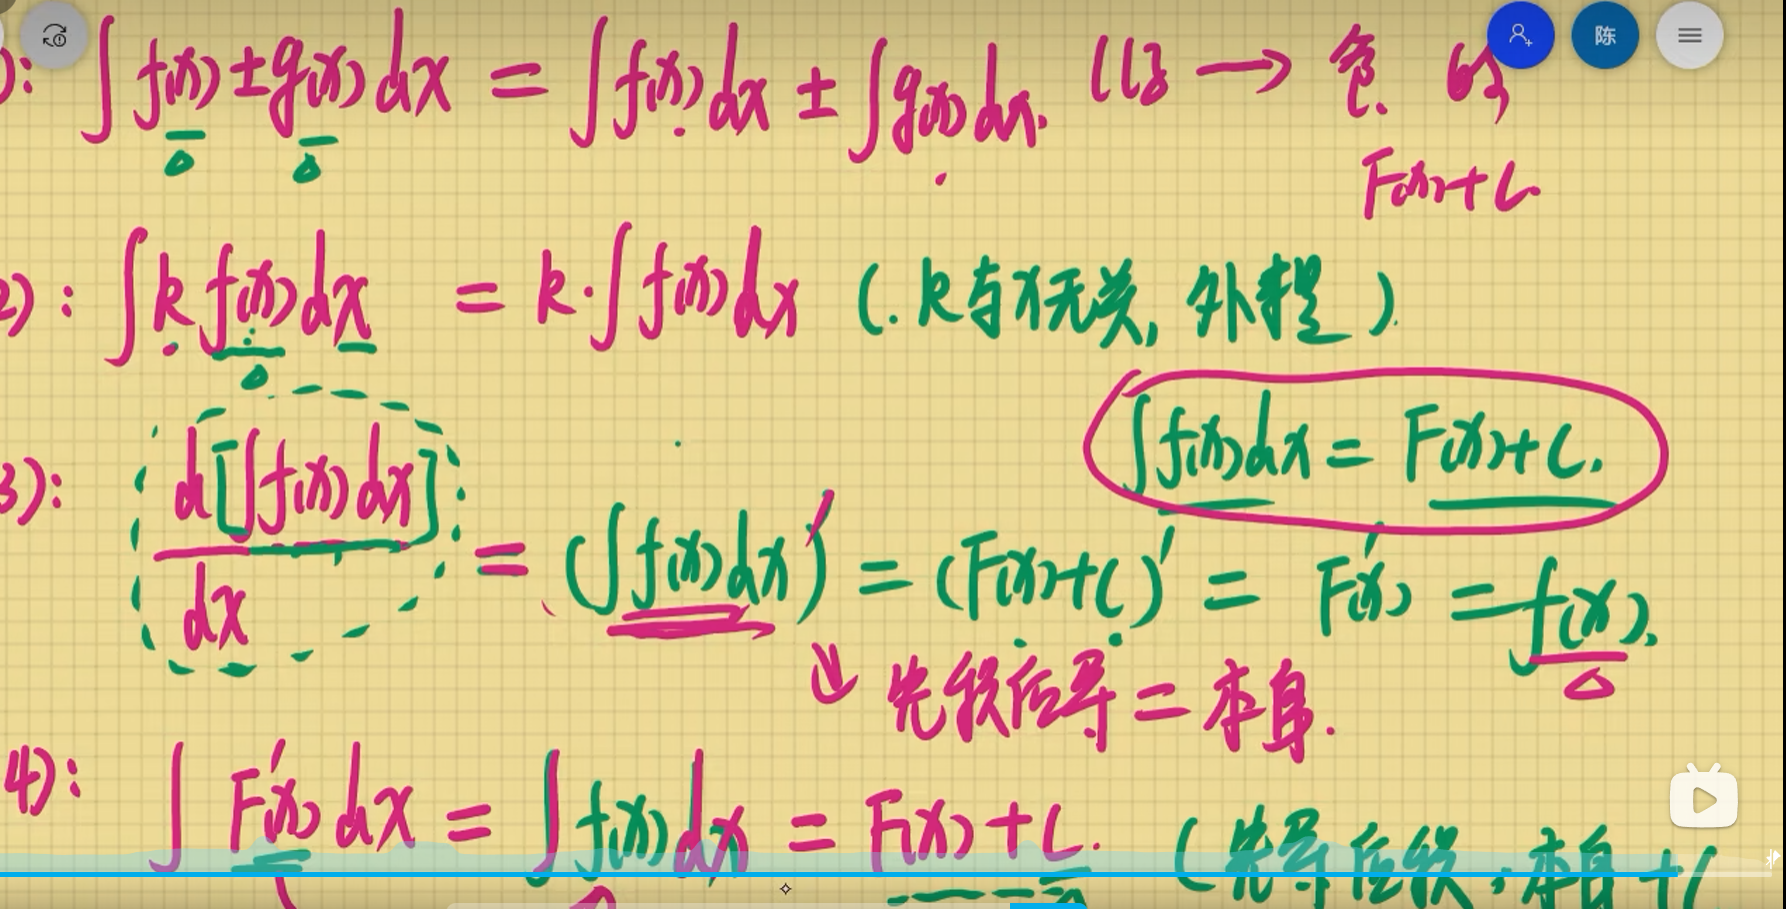 ): ∫ f(x) ± g(x) dx = ∫ f(x) dx ± ∫ g(x) dx. → 含
陈
F(x)+C
2): ∫ k f(x) dx = k·∫ f(x) dx (k与x无关, 外提)
∫ f(x) dx = F(x)+C.
3): d[∫ f(x) dx] / dx = (∫ f(x) dx)' = (F(x)+C)' = F'(x) = f(x).
先积后导 = 本身.
4): ∫ F'(x) dx = ∫ f(x) dx = F(x)+C. (先导后积, 本身+C